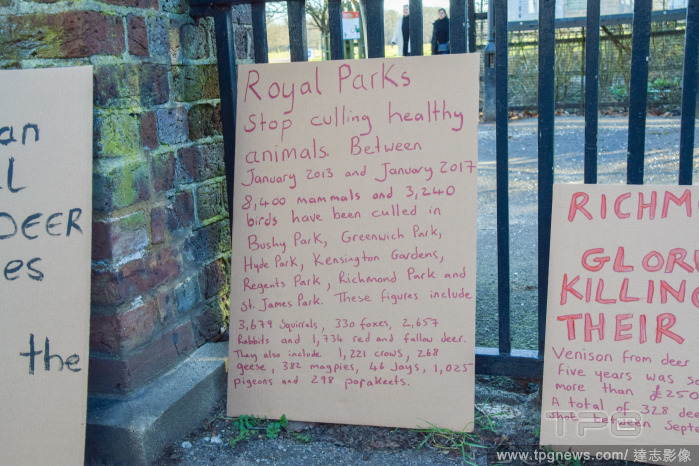 an
L
DEER
es
the
Royal Parks
Stop culling healthy
animals. Between
January 2013 and January 2017
8,400 mammals and 3,240
birds have been culled in
Bushy Park, Greenwich Park,
Hyde Park, Kensington Gardens,
Regents Park, Richmond Park and
St. James Park. These figures include
3,679 Squirrels, 330 foxes, 2,657
Rabbits and 1,734 red and fallow deer.
They also include 1,221 crows, 268
geese, 382 magpies, 46 Jays, 1,025
pigeons and 298 parakeets.
RICHM
GLORI
KILLING
THEIR
Venison from deer
five years was so
more than £250
A total of 328 dee
shot between Septe
TPG
www.tpgnews.com/ 達志影像